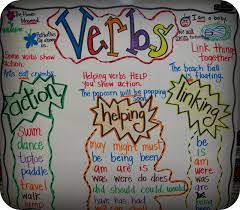 Verbs
Some verbs show
action.
Ants eat crumbs.
Helping verbs HELP
you show action.
The popcorn will be popping
soon.
I am a baby.
Link things
together.
The beach ball
is floating.
action
helping
linking
swim
dance
tiptoe
paddle
travel
walk
may might must
be being been
am are is
was were do does
did should could would
have has had
be
is
am
were
was
are